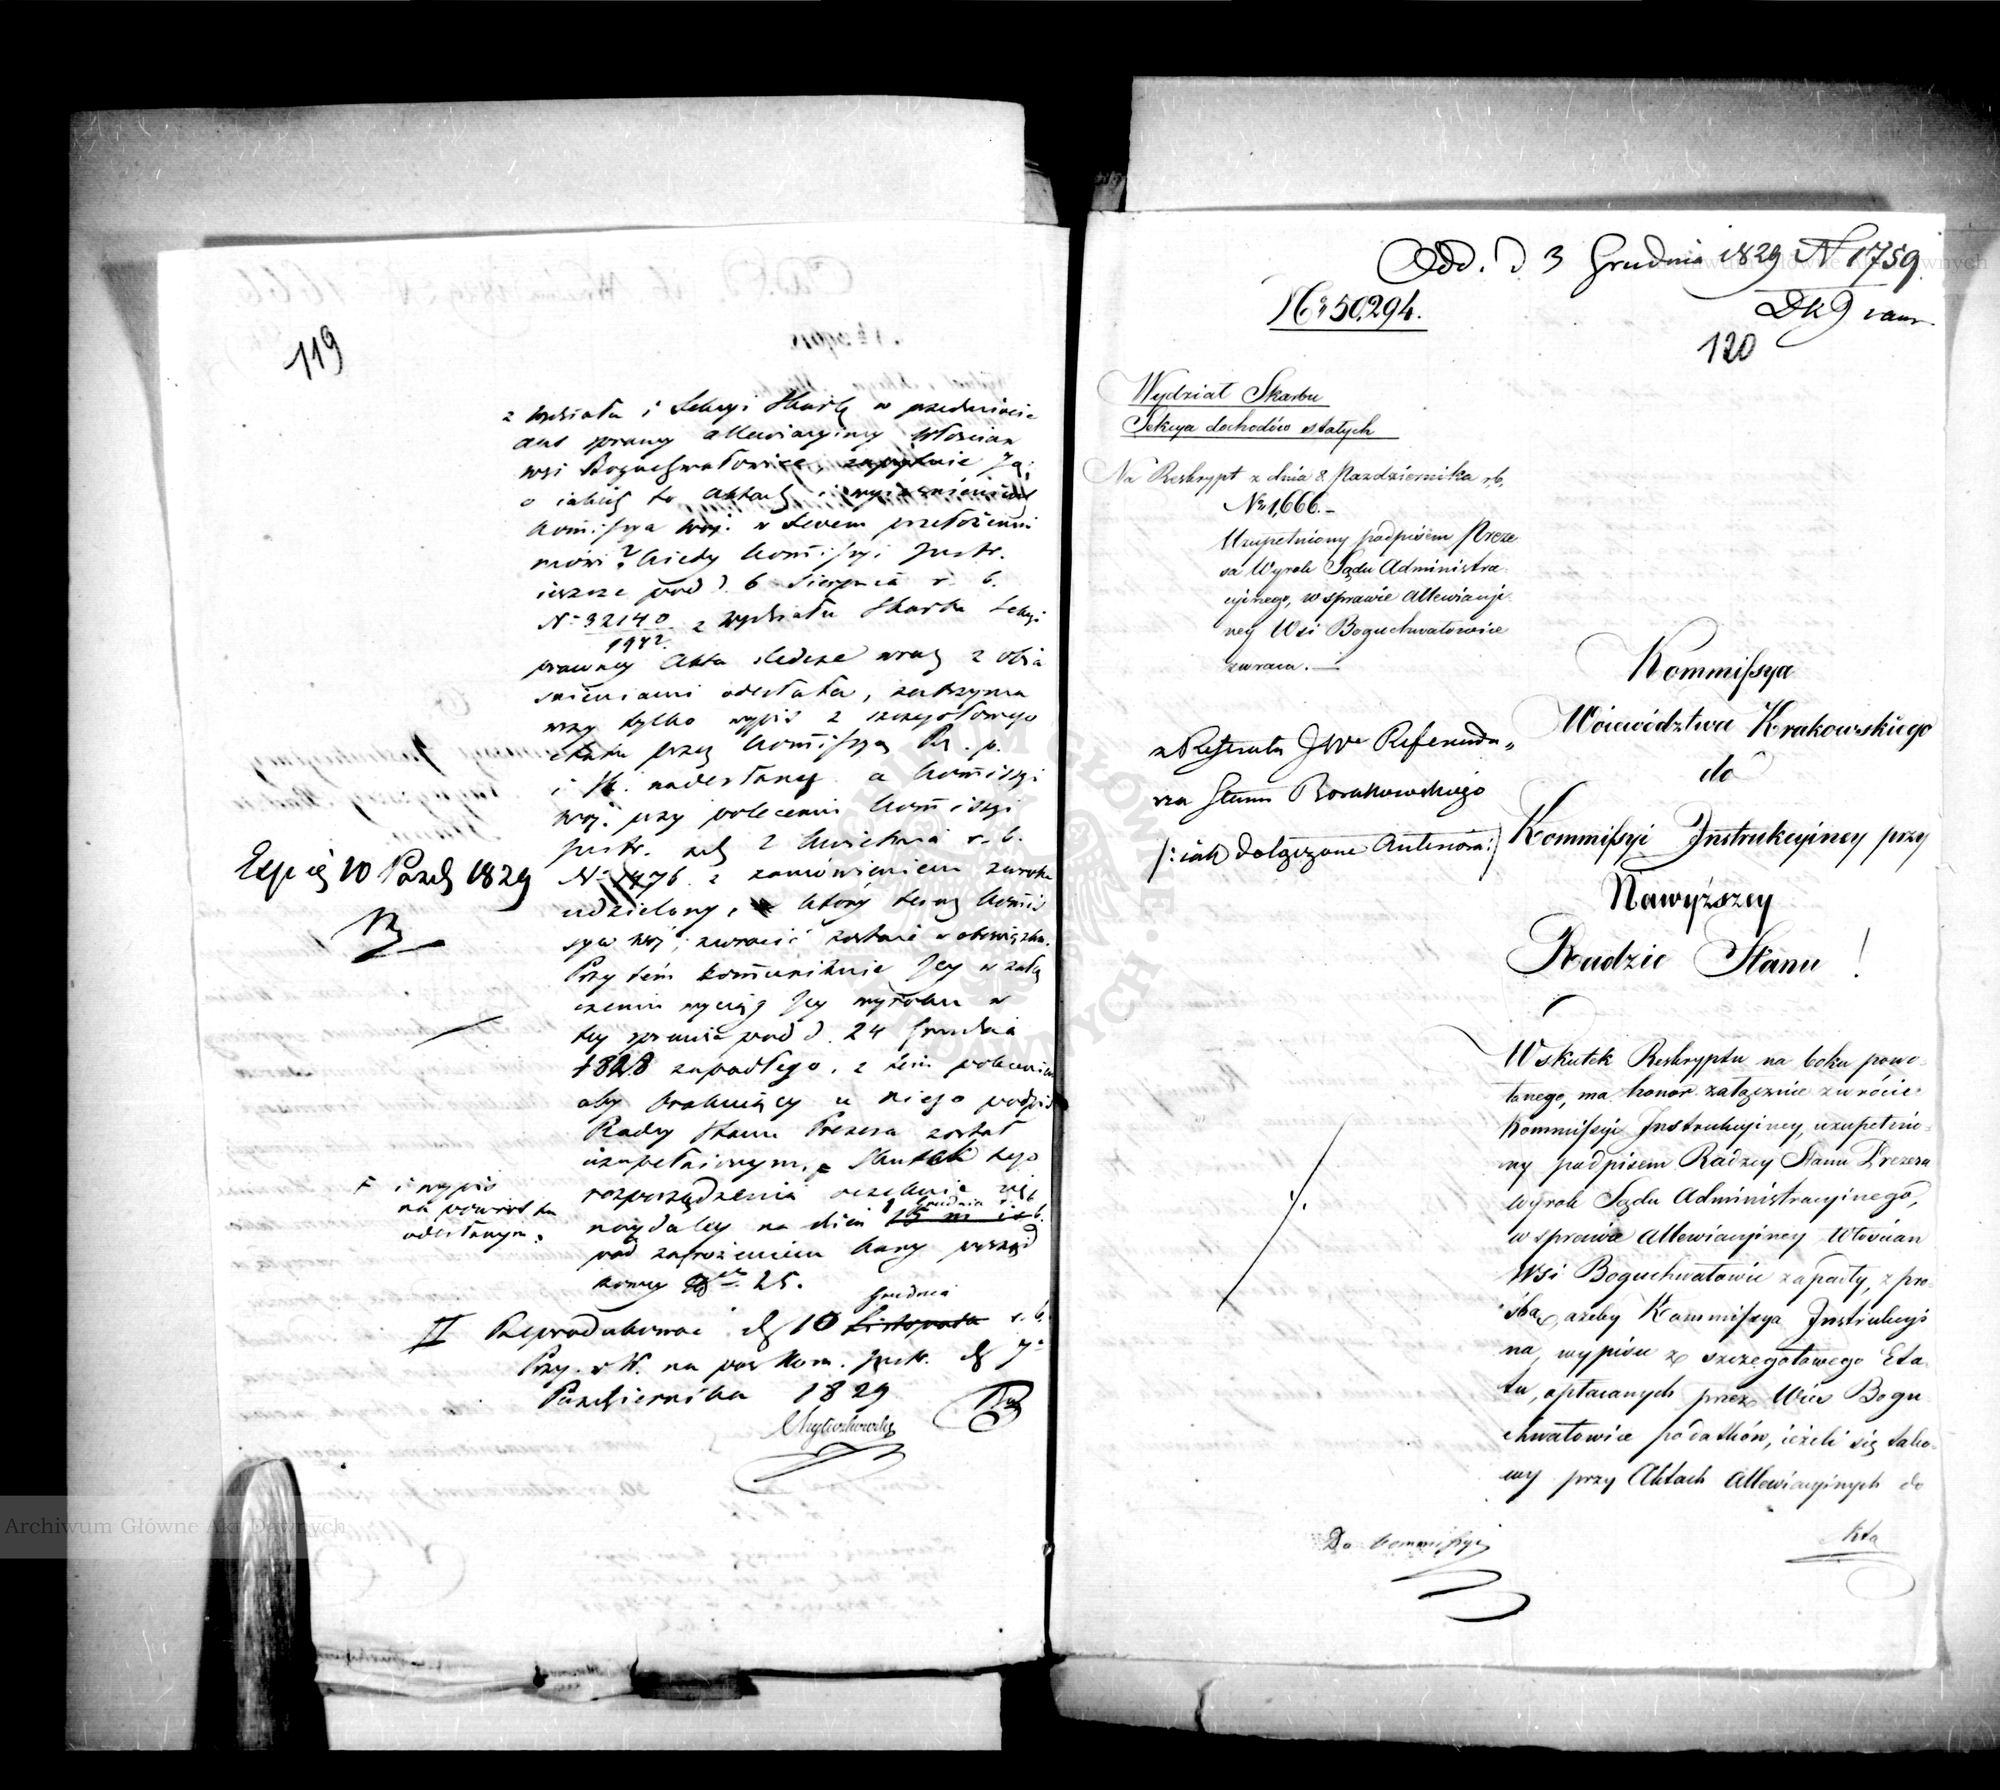 119
z Wydziału i Sekcyi Skarbu w przedmiocie
sprawy allewiacyiney Włościan
wsi Boguchwałowice, zapytuie Ją;
o iakich to Aktach i wyiaśnieniach
Kommissya Woj. w swem przełożeniu
mówi? kiedy Kommissyi Instr.
ieszcze pod d. 6 Sierpnia r. b.
N. 32140 z Wydziału Skarbu Sekcyi
1972.
prawney Akta śledcze wraz z obia
śnieniami odesłała, zatrzyma
wszy tylko wypis z szczegółowego
etatu przez Kommissyą Rz. p.
i Sk. nadesłany a Kommissyi
Woj. przy poleceniu Kommissyi
Instr. z d. 2 Kwietnia r. b.
N. 1476. z zamówieniem zwrotu
udzielony, który teraz Kommis
sya Woj; zwrócić zostaie w obowiązku.
Przy tém kommunikuie Jey w załą
czeniu wyciąg Jey wyroku w
tey sprawie pod d. 24 Grudnia
1828 zapadłego, z tém poleceniem
aby brakuiący u niego podpis
Radcy Stanu Prezesa został
uzupełnionym, Skutek tego
F i wypis
na powrót tu
odesłanym.
rozporządzenia oczekuie się
naydaley na dzień 15 Grudnia r. b.
pod zagrożeniem kary porząd
kowey 25.
Exp. 10 Paźd. 1829
II Reprodukować d. 10 Listopada Grudnia r. b.
Prz. w W. na pos. Kom. Instr. d. 7
Października 1829
Odd. d 3 Grudnia 1829 N 1759.
No 50,294.
120
Wydział Skarbu
Sekcya dochodów stałych
Na Reskrypt z dnia 8 Pazdziernika r.b.
No 1,666.-
Uzupełniony podpisem Preze
sa Wyrok Sądu Administra-
cyinego, w sprawie Allewiacyi
ney Wsi Boguchwałowice
zwraca. -
z Resztą JWe Referenda„
rza Stanu Borakowskiego
/: iak dołączone Anteriora :/
Kommissya
Województwa Krakowskiego
do
Kommissyi Instrukcyiney przy
Naywyższey
Radzie Stanu!
W skutek Reskryptu na boku powo-
łanego, ma honor załącznie zwrócić
Kommissyi Instrukcyiney, uzupełnio-
ny podpisem Radzcy Stanu Prezesa
Wyrok Sądu Administracyinego,
w sprawie Allewiacyiney Włościan
Wsi Boguchwałowic zapadły, z pro-
śbą, ażeby Kommissya Instrukcyi
na, wypisu z szczegółowego Eta-
tu, opłacanych przez Wieś Bogu
chwałowice podatków, ieżeli się tako-
wy przy Aktach Allewiacyinych do
Do Kommissyi